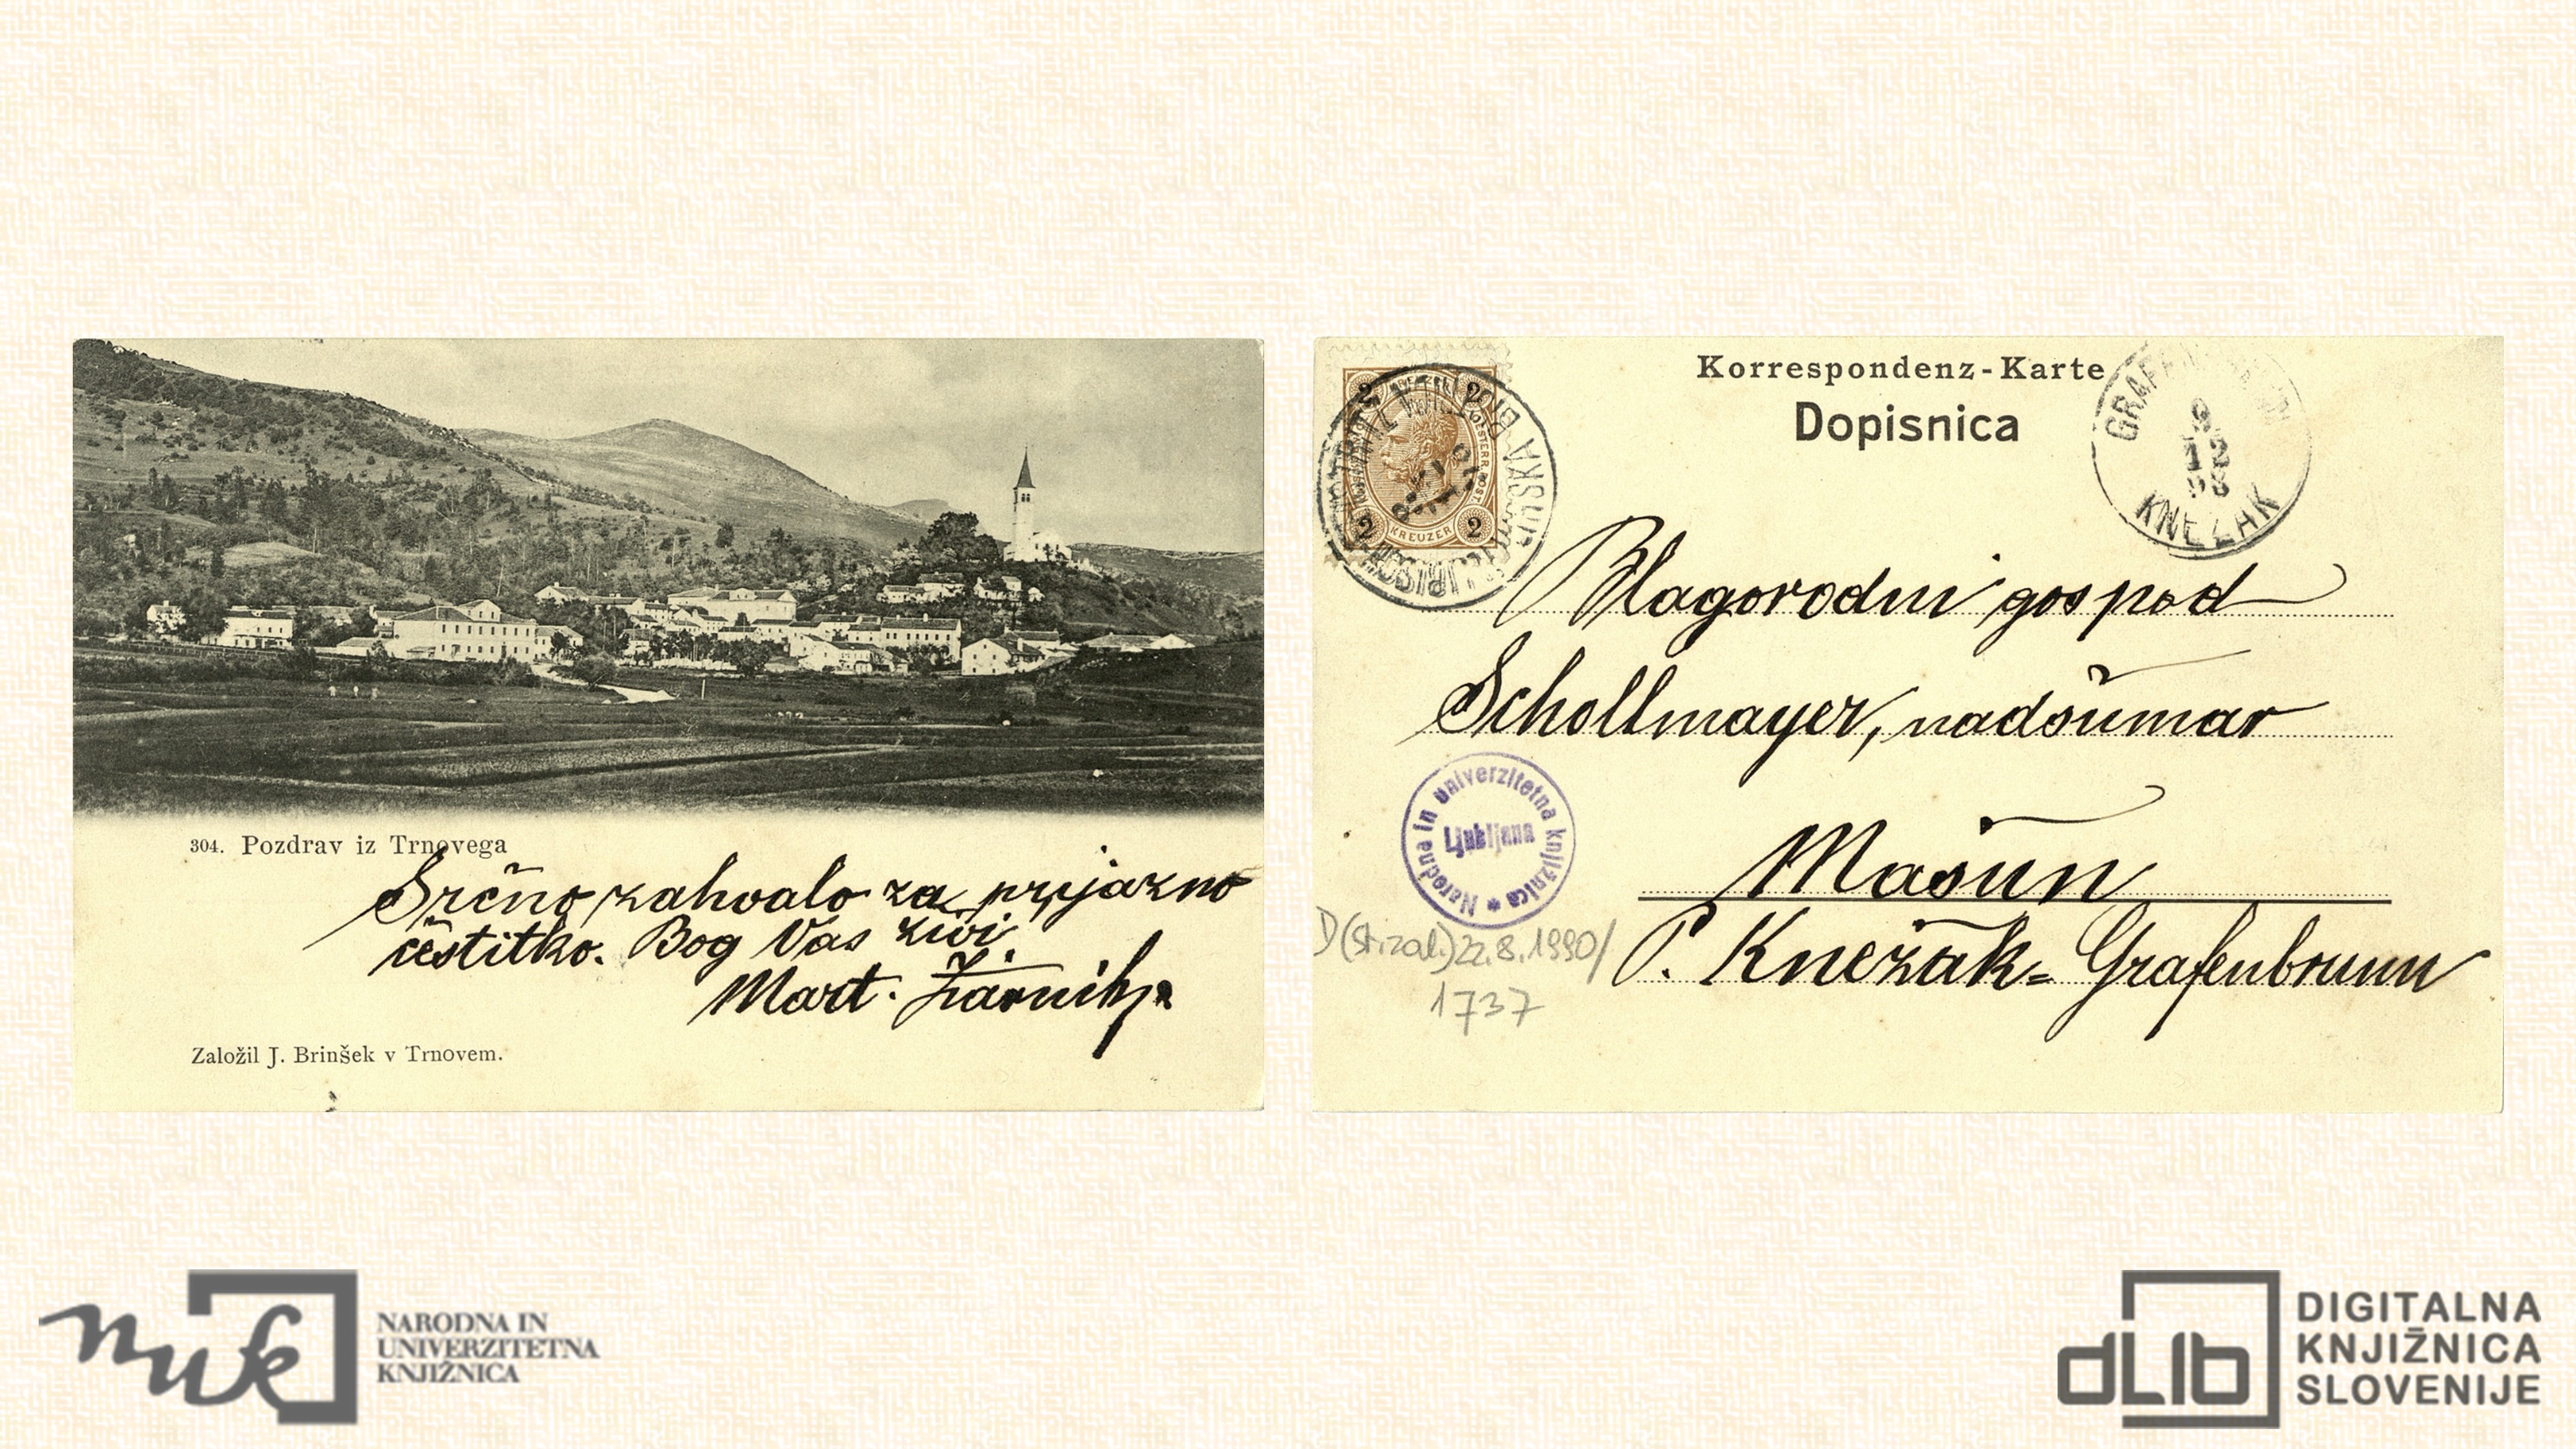 304. Pozdrav iz Trnovega
Srčno zahvalo za prijazno
čestitko. Bog Vas živi
Mart.
Založil J. Brinšek v Trnovem.
Korrespondenz-Karte
Dopisnica
2 2
2 KREUZER 2
GRAFENBRUNN
KNEŽAK
Blagorodni gospod
Schollmayer, nadšumar
Mašun
P. Knežak=Grafenbrunn
Narodne in univerzitetna knjižnica
Ljubljana
22.8.1990/
1737
nuk
NARODNA IN
UNIVERZITETNA
KNJIŽNICA
dLib
DIGITALNA
KNJIŽNICA
SLOVENIJE